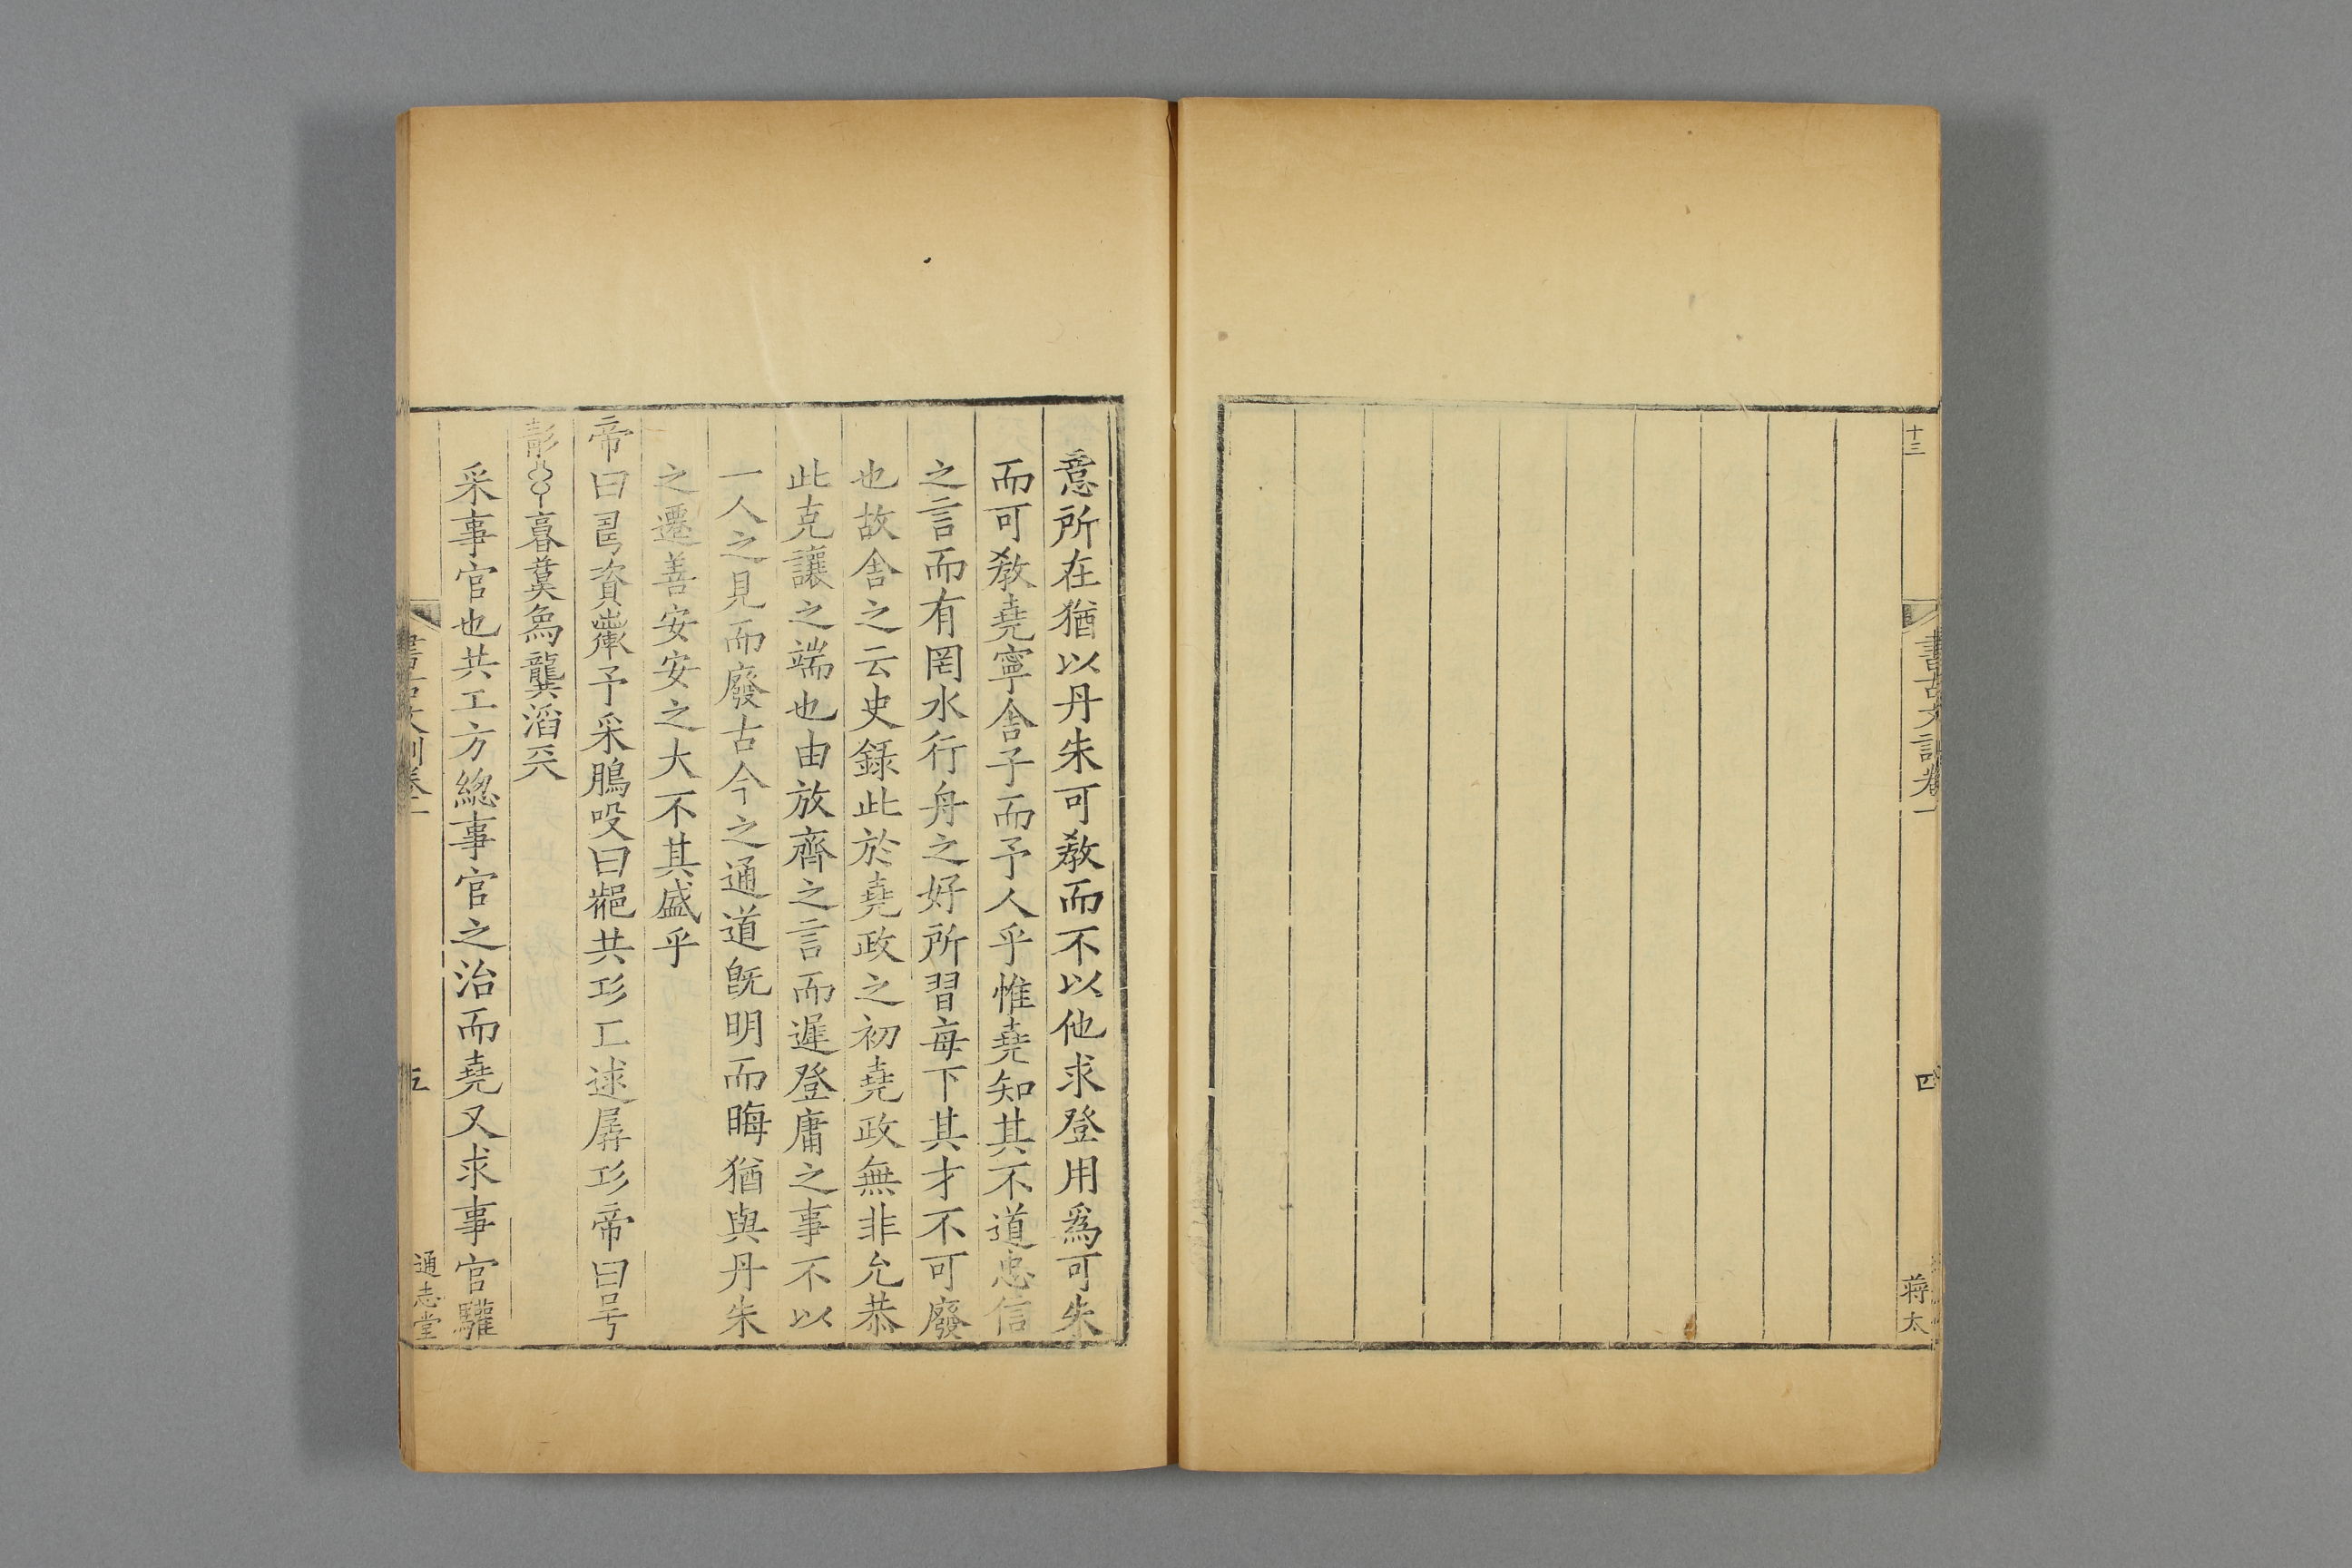 十三
書古文訓卷一
四
蔣太
意所在猶以丹朱可教而不以他求登用爲可朱
而可教堯寧舍子而予人乎惟堯知其不道忠信
之言而有罔水行舟之好所習每下其才不可廢
也故舍之云史錄此於堯政之初堯政無非允恭
此克讓之端也由放齊之言而遲登庸之事不以
一人之見而廢古今之通道旣明而晦猶與丹朱
之遷善安安之大不其盛乎
帝曰資予采鵰吺曰共㓛工逑孱㓛帝曰
龔滔
采事官也共工方緫事官之治而堯又求事官驩
書古文訓卷一
五
通志堂